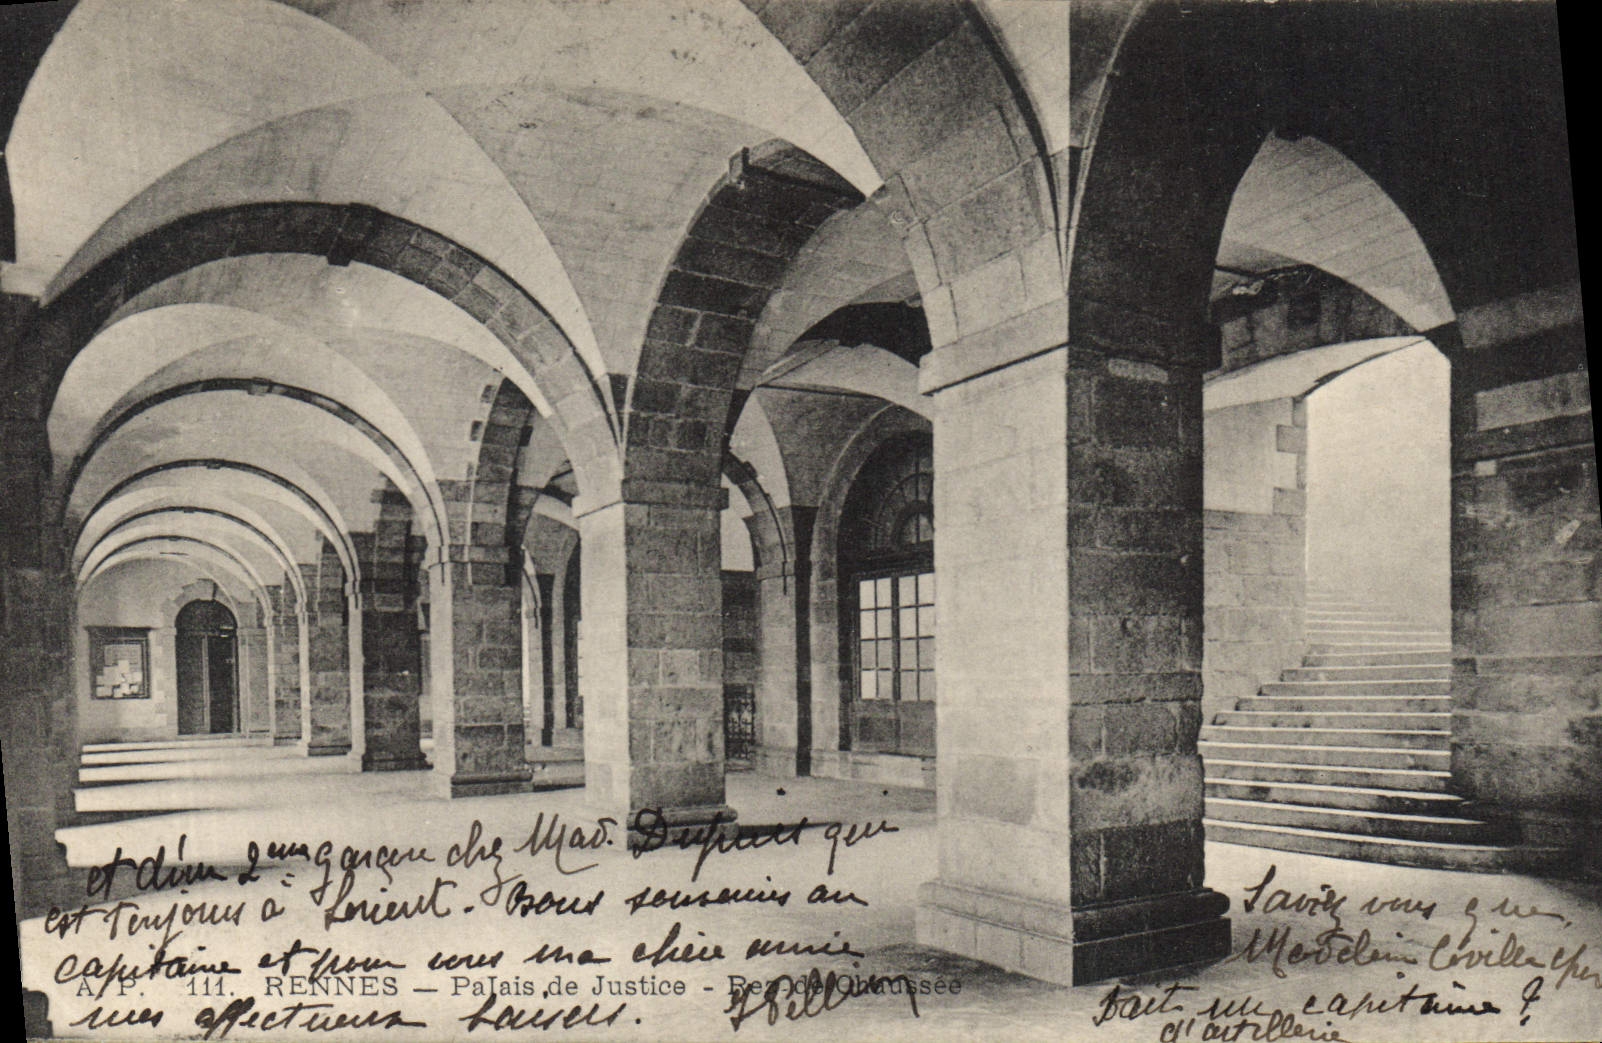 et d'un 2eme garçon chez Mad. Dupuis qui
est toujours à Lorient. Bons souvenirs au
capitaine et pour vous ma chère amie
mes affectueux baisers.
A. P. 111. RENNES — Palais de Justice - Rez-de-Chaussée
Saviez vous que
Madelein Léville
fait un capitaine ?
d'artillerie